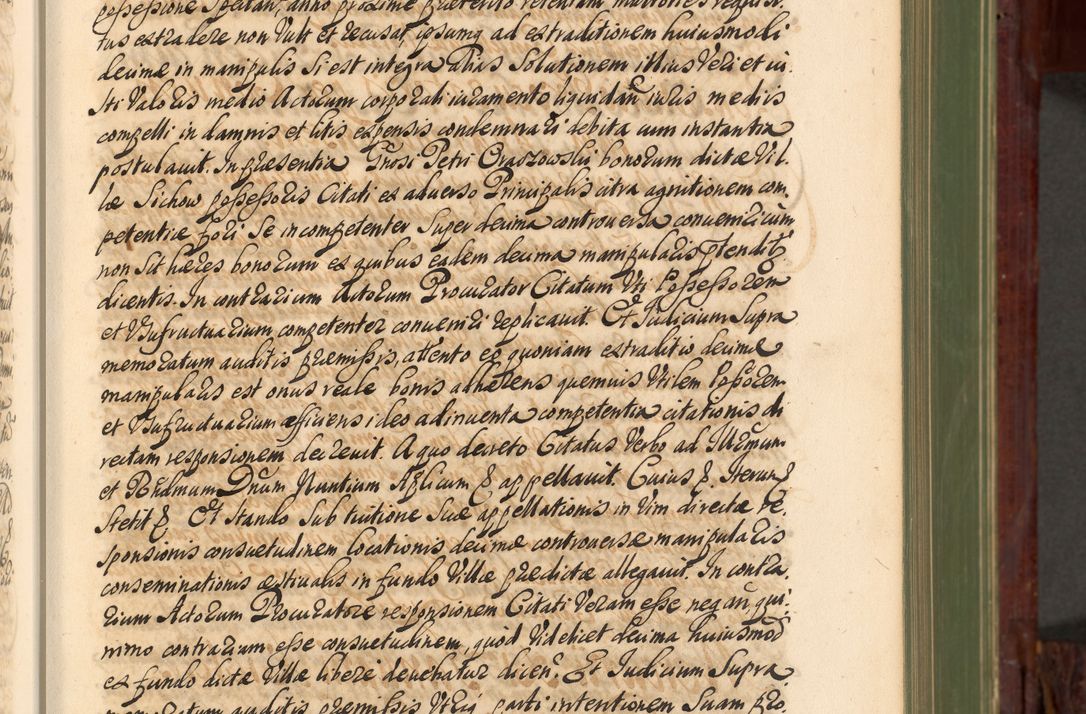 possessione Spectan, anno proxime præterito retentam
tus extradere non Vult et recusat, ipsumq ad extraditionem huiusmodi
decimæ in manipulis Si est integra Alias Solutionem illius Veri et iu,
sti Valoris medio Actorum corporali iuramento liquidan iuris mediis
compelli in damnis et litis expensis condemnari debita cum instantia
postulauit. In præsentia Gnosi Petri Oraszowskii bonorum dictæ Vil,
læ Sichow possessoris Citati ex aduerso Principalis citra agnitionem com,
petentiæ fori Se incompetenter Super decima controuersa conueniri cum
non Sit hæres bonorum ex quibus eadem decima manipularis ptenditr
dicentis. In contrarium Actorum Procurator Citatum Uti Possessorem
et Usufructuarium competenter conueniri replicauit. Et Judicium Supra
memoratum auditis præmissis, attento eo quoniam extraditio decimæ
manipularis est onus reale bonis adhærens quemuis Utilem Possorem
et Usufructuarium afficiens ideo adinuenta competentia citationis di
rectam responsionem decreuit. A quo decreto Citatus Verbo ad Illrmum
et Rndmum Dnum Nuntium Aplicum & appellauit. Cuius &. Iterum &
Stetit &. Et Stando Sub tuitione Suæ appellationis in Vim directæ re,
sponsionis consuetudinem locationis decimæ controuersæ manipularis
conseminationis æstiualis in fundo Villæ prædictæ allegauit. In contra,
rium Actorum Procuratore responsionem Citati Veram esse negan, qui,
nimo contrarium esse consuetudinem, quod Videlicet decima huiusmodi
ex fundo dictæ Villæ libere deuehatur dicen. Et Judicium Supra
auditis præmissis Utriq parti intentionem Suam pro,